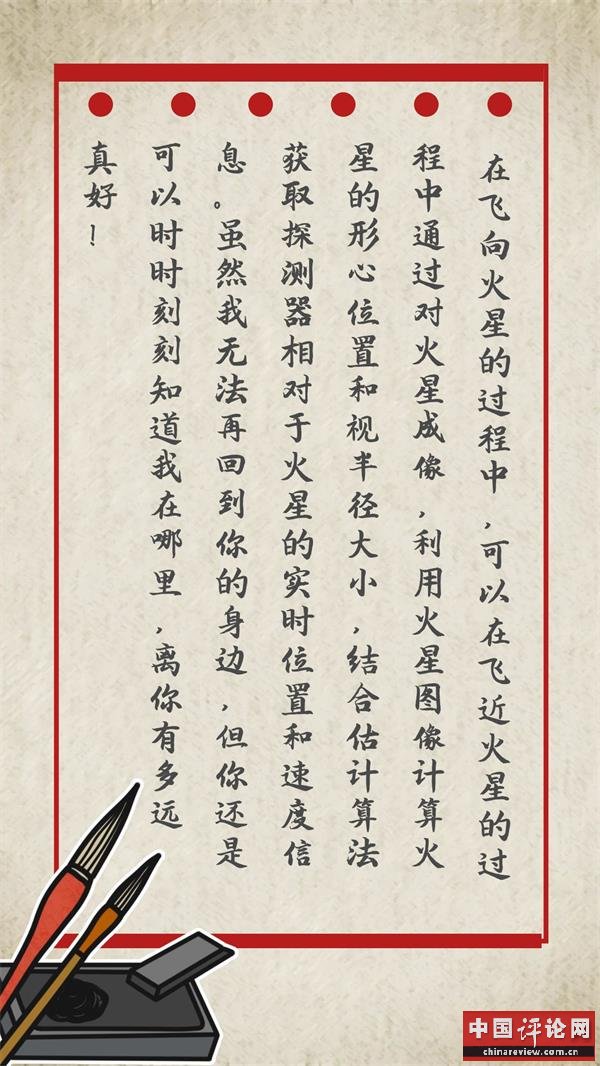 在飞向火星的过程中，可以在飞近火星的过
程中通过对火星成像，利用火星图像计算火
星的形心位置和视半径大小，结合估计算法
获取探测器相对于火星的实时位置和速度信
息。虽然我无法再回到你的身边，但你还是
可以时时刻刻知道我在哪里，离你有多远
真好！
中国评论网
chinareview.com.cn